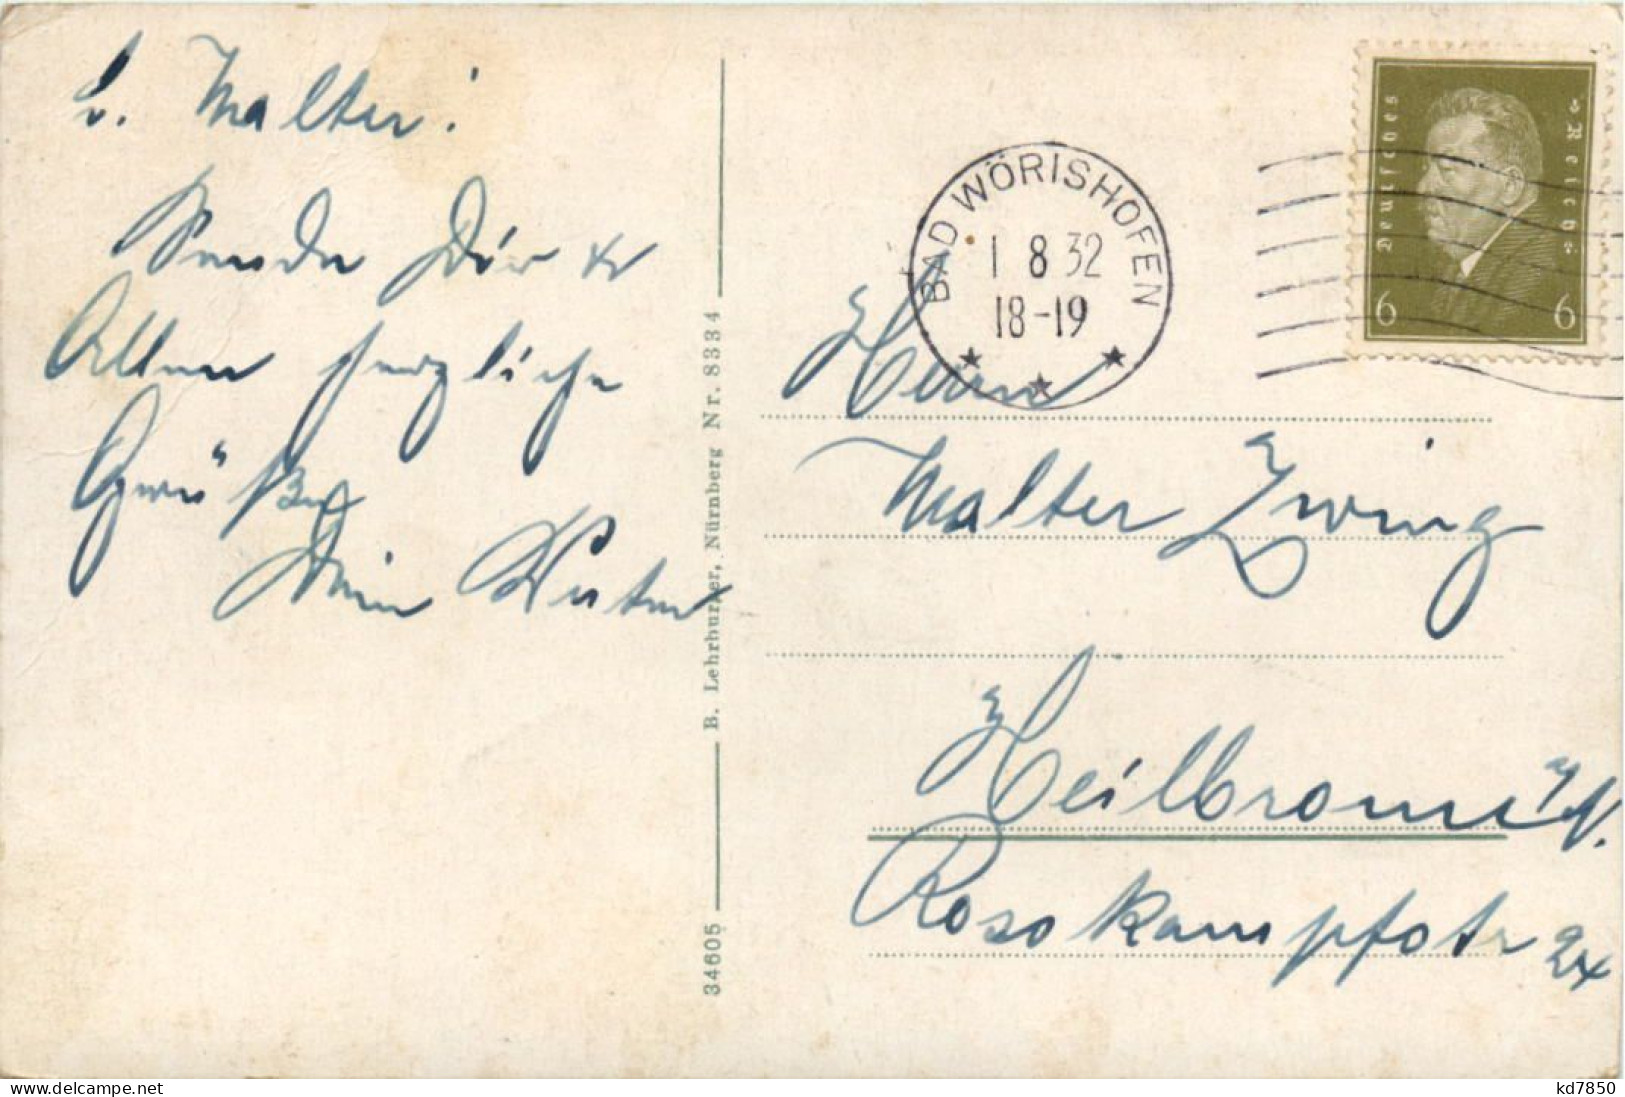 L. Walter!
Sende Dir &
Allen herzliche
Grüße
Dein Vater
B. Lehrburger, Nürnberg Nr. 8334
34605
BAD WÖRISHOFEN
1 8 32
18-19
Deutsches Reich
6 6
Herrn
Walter Zwing
Heilbronn a/N.
Rosskampfstr 24
www.delcampe.net
kd7850